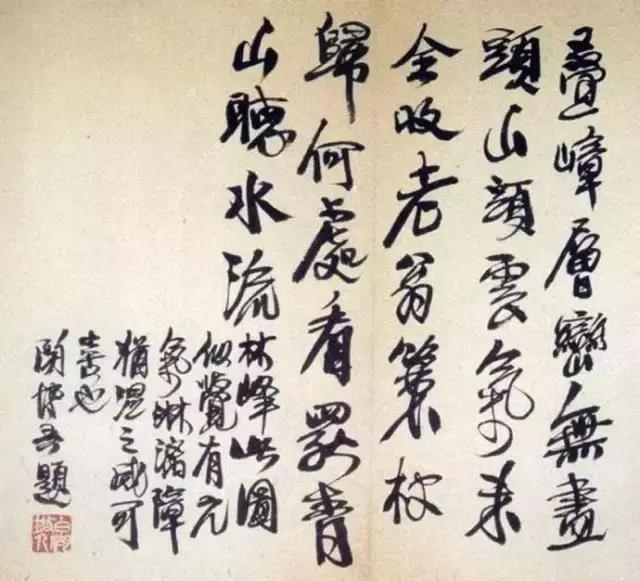 疊嶂層巒無盡
頭山頭雲氣未
全收老翁策杖
歸何處看罷青
山聽水流
林峰此圖
似覺有元
氣淋漓障
猶濕之感可
喜也
題